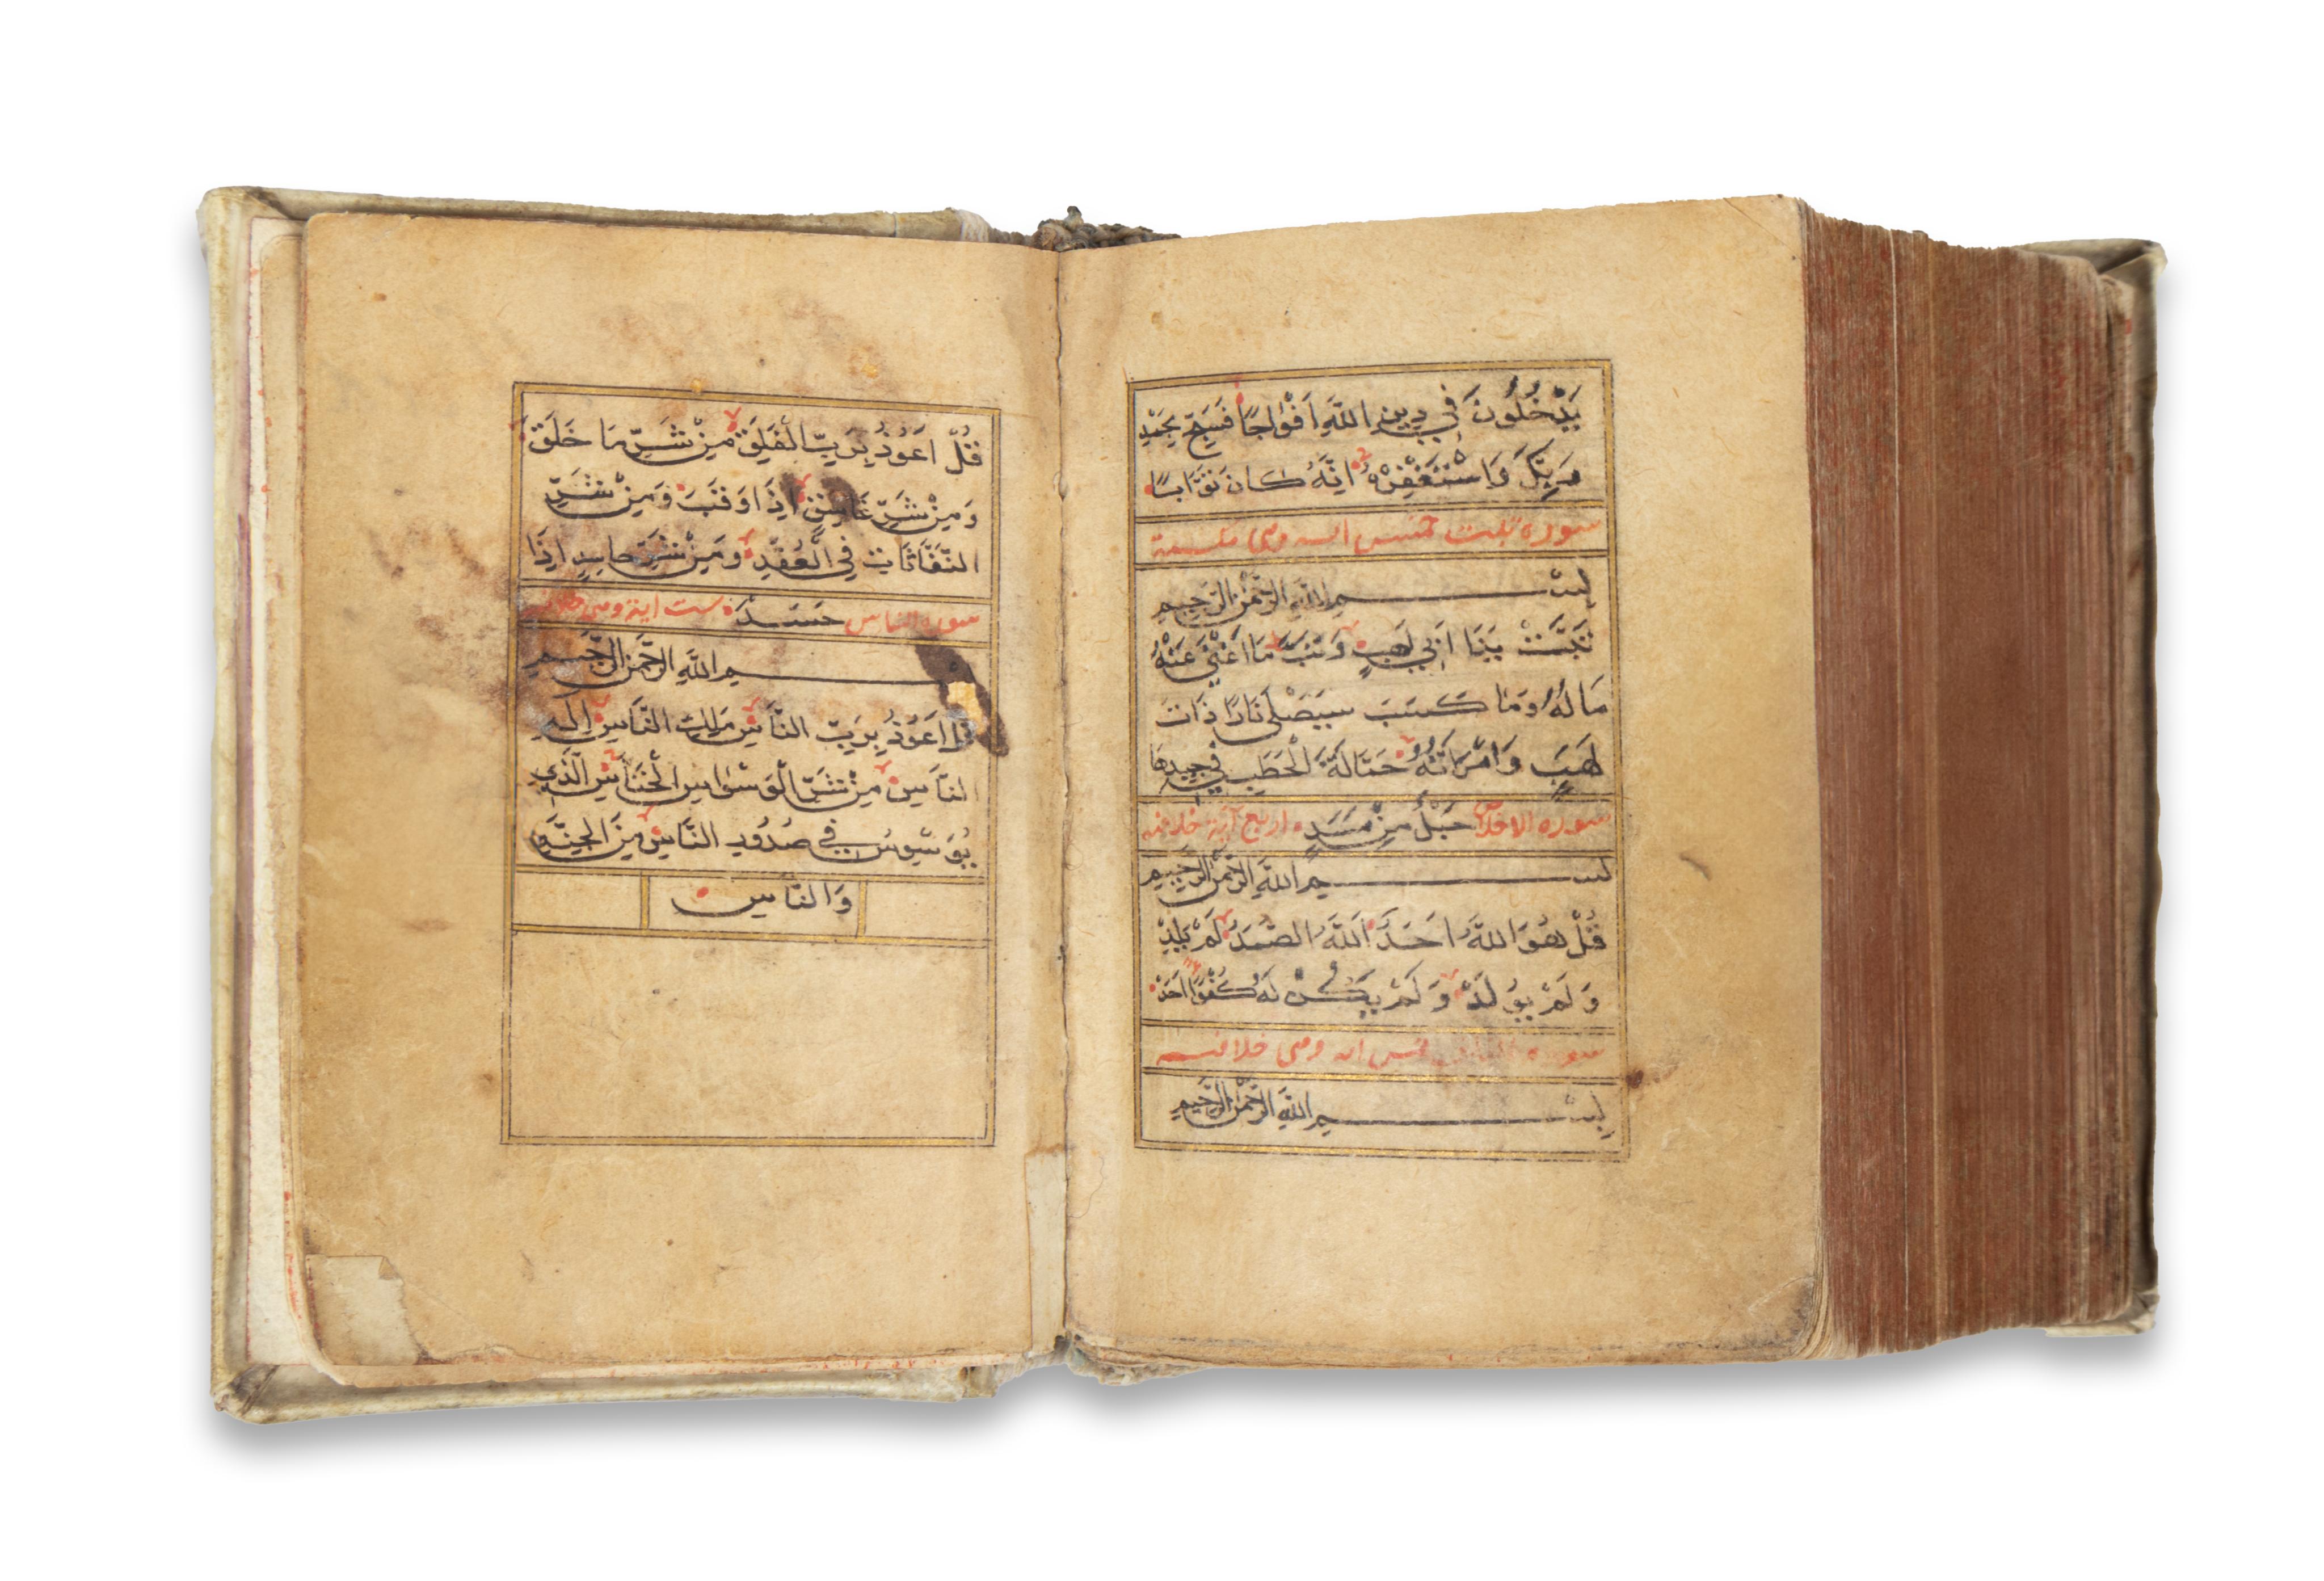 يَدْخُلُونَ فِي دِينِ اللَّهِ اَفْوَاجًا فَسَبِّحْ بِحَمْدِ
رَبِّكَ وَاسْتَغْفِرْهُ اِنَّهُ كَانَ تَوَّابًا
سوره تبت خمس ايه وهى مكية
بِسْمِ اللَّهِ الرَّحْمٰنِ الرَّحِيمِ
تَبَّتْ يَدَا اَبِي لَهَبٍ وَتَبَّ مَا اَغْنٰى عَنْهُ
مَالُهُ وَمَا كَسَبَ سَيَصْلٰى نَارًا ذَاتَ
لَهَبٍ وَامْرَاَتُهُ حَمَّالَةَ الْحَطَبِ فِي جِيدِهَا
سوره الاخلاص حَبْلٌ مِنْ مَسَدٍ اربع آية
بسم اللَّهِ الرَّحْمٰنِ الرَّحِيمِ
قُلْ هُوَ اللَّهُ اَحَدٌ اَللَّهُ الصَّمَدُ لَمْ يَلِدْ
وَلَمْ يُولَدْ وَلَمْ يَكُنْ لَهُ كُفُوًا اَحَدٌ
سوره خمس ايه وهى
بِسْمِ اللَّهِ الرَّحْمٰنِ الرَّحِيمِ
قُلْ اَعُوذُ بِرَبِّ الْفَلَقِ مِنْ شَرِّ مَا خَلَقَ
وَمِنْ شَرِّ غَاسِقٍ اِذَا وَقَبَ وَمِنْ شَرِّ
النَّفَّاثَاتِ فِي الْعُقَدِ وَمِنْ شَرِّ حَاسِدٍ اِذَا
سوره الناس حَسَدَ ست اية وهى
م اللَّهِ الرَّحْمٰنِ الرَّحِيمِ
قُلْ اَعُوذُ بِرَبِّ النَّاسِ مَلِكِ النَّاسِ اِلٰهِ
النَّاسِ مِنْ شَرِّ الْوَسْوَاسِ الْخَنَّاسِ الَّذِي
يُوَسْوِسُ فِي صُدُورِ النَّاسِ مِنَ الْجِنَّةِ
وَالنَّاسِ